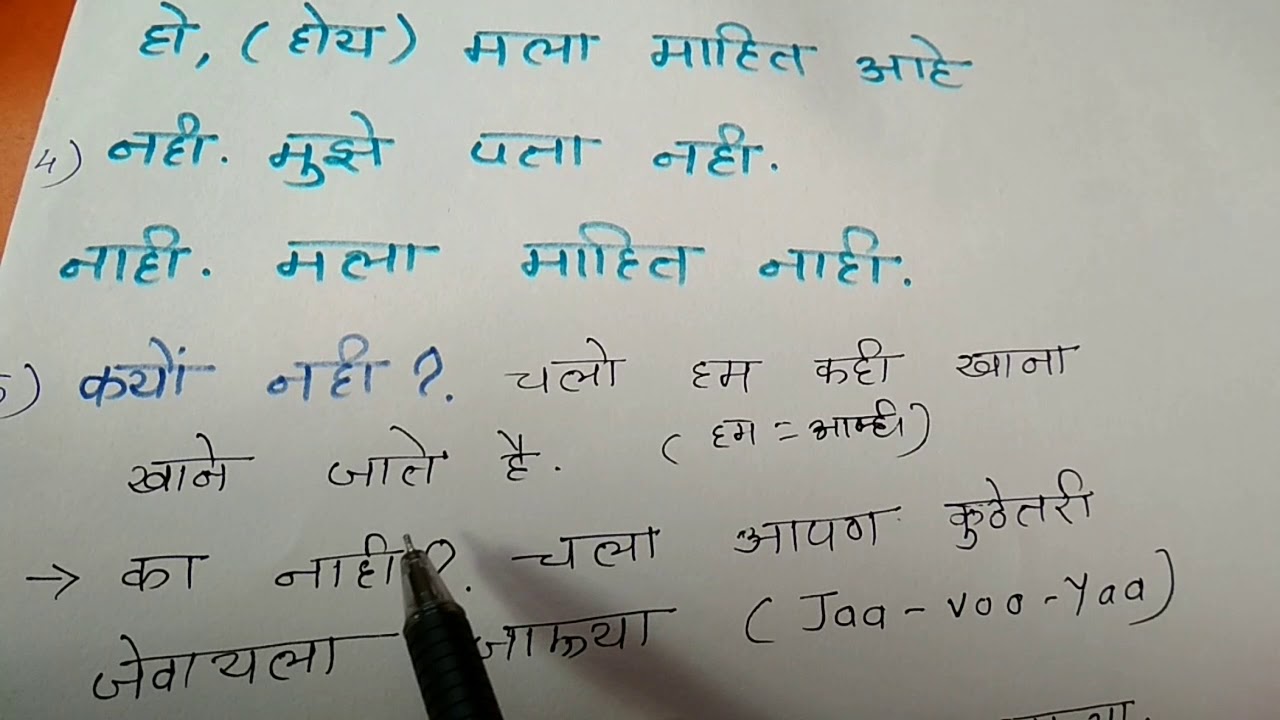 हो, (होय) मला माहित आहे
4) नही. मुझे पता नही.
नाही. मला माहित नाही.
5) क्यों नही?. चलो हम कही खाना
खाने जाते है. (हम = आम्ही)
→ का नाही?. चला आपण कुठेतरी
जेवायला जाऊया (Jaa-voo-Yaa)